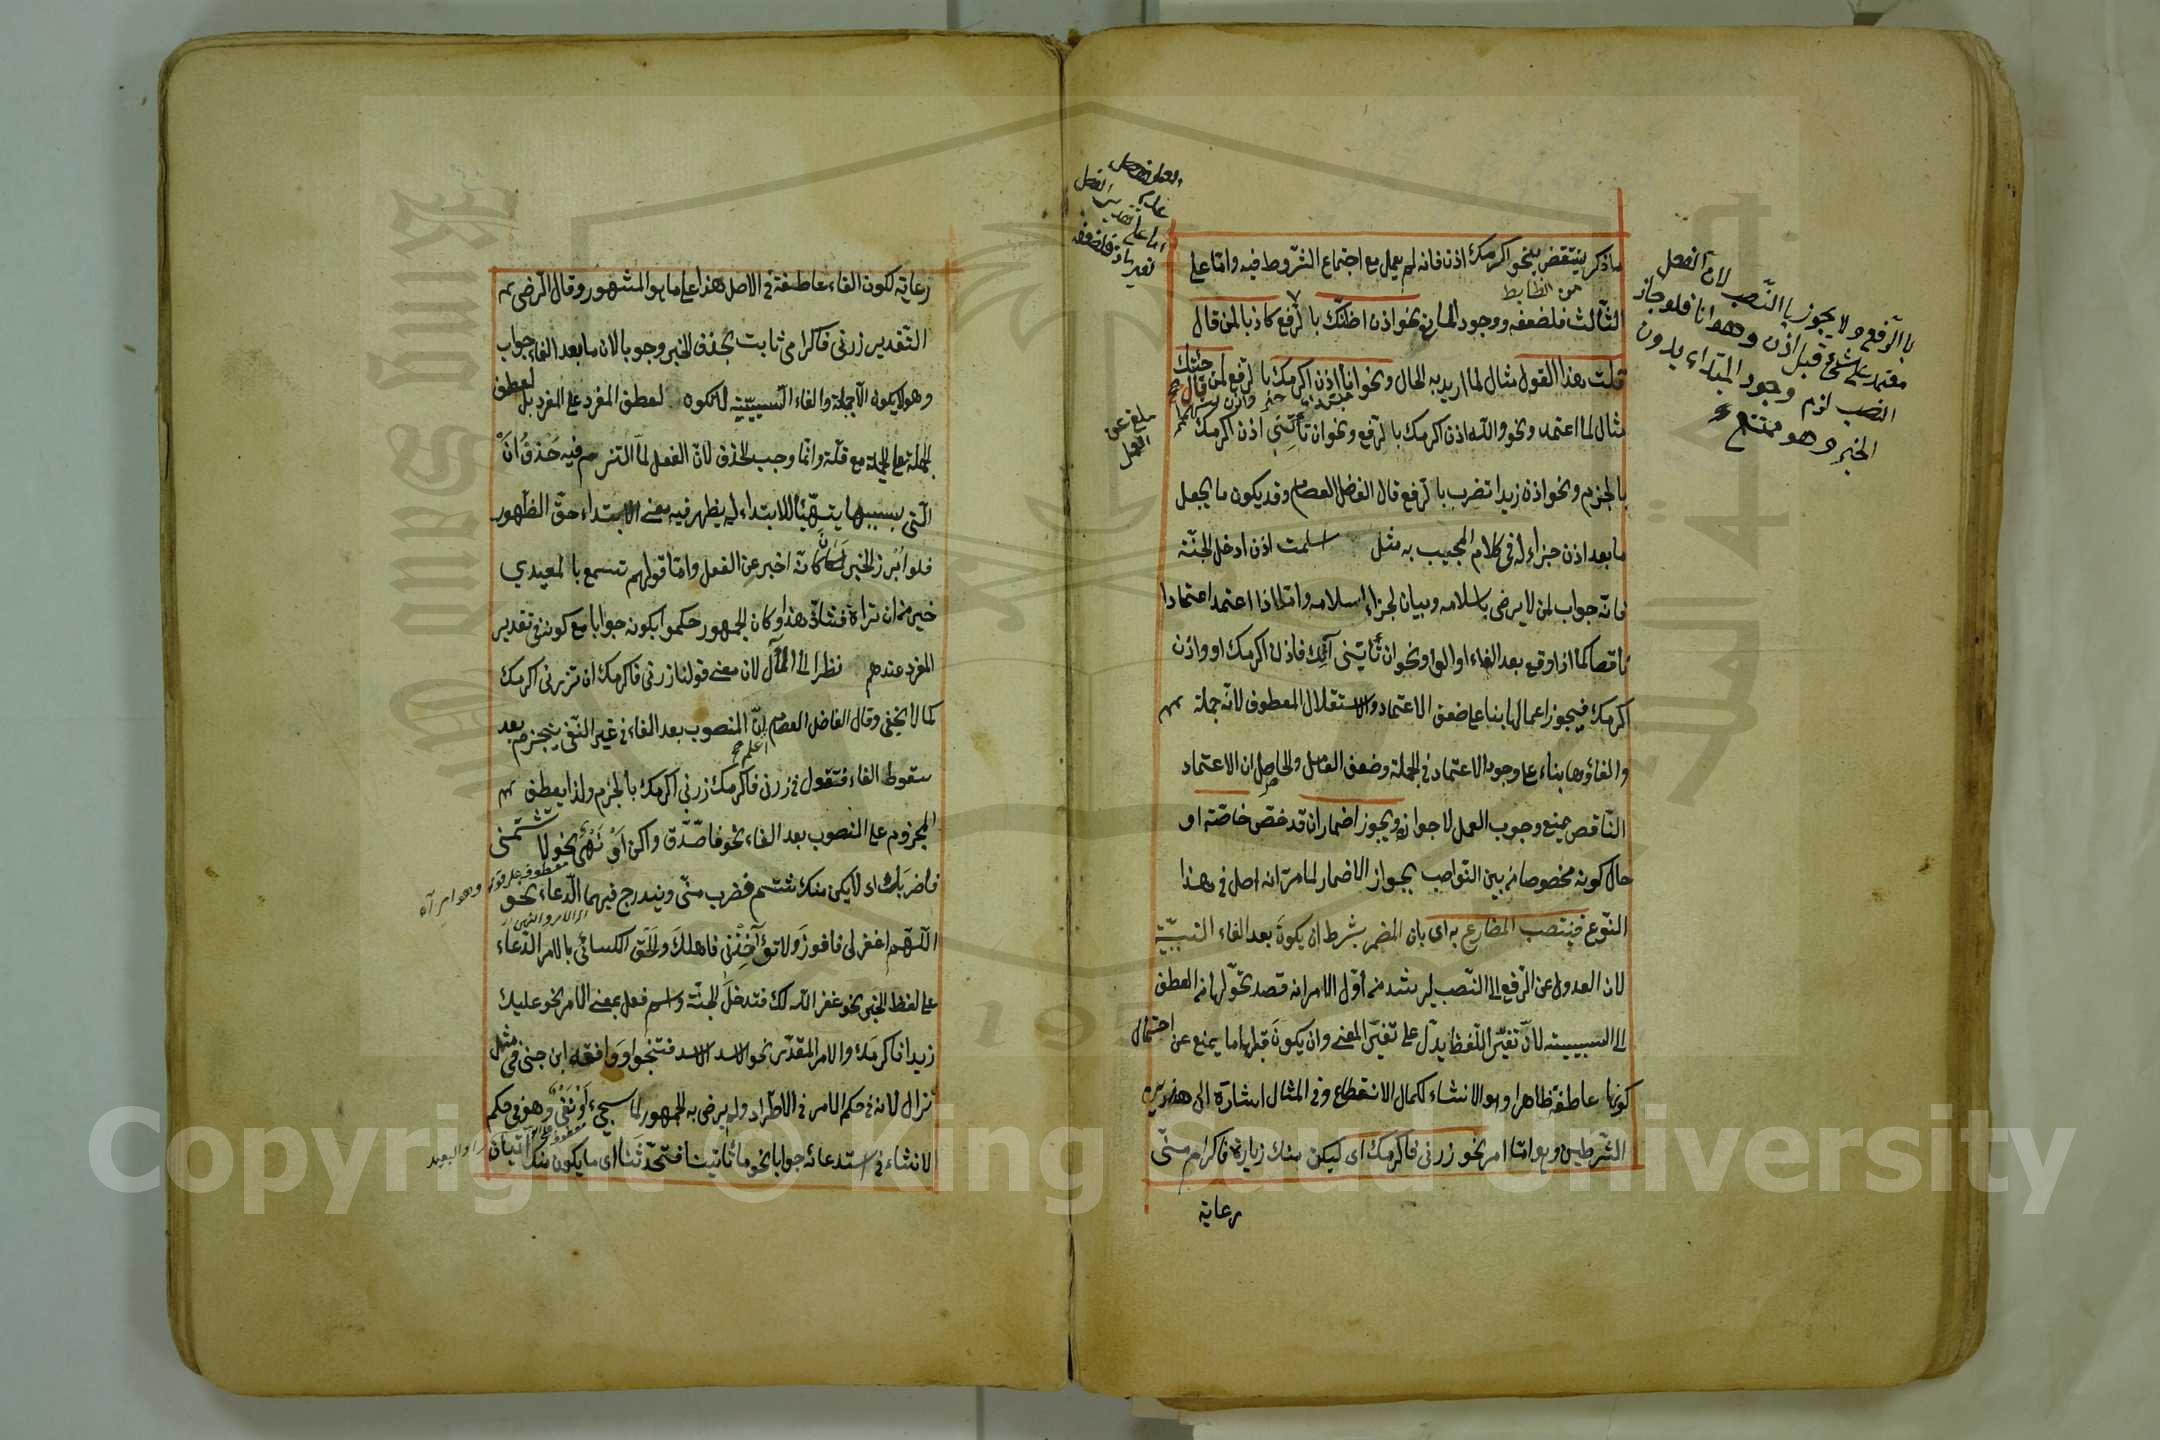 ماذكر ينتقض بنحو اكرمك اذن فانه لم يعمل مع اجتماع الشروط فيه واما على
من الظابط
الثالث فلضعفه ووجود المعارض نحو اذن اظنك بالرفع كاذبا لمن قال
قلت هذا القول مثال لما اريد به الحال ونحو انا اذن اكرمك بالرفع لمن قال جئتك
مثال لما اعتمد ونحو والله اذن اكرمك بالرفع ونحو ان تأتني اذن اكرمك
بالجزم ونحو اذن زيدا تضرب بالرفع قال الفاضل العصام وقد يكون ما يجعل
ما بعد اذن جزاء له في كلام المجيب به مثل اسلمت اذن ادخل الجنة
فانه جواب لمن لا يرضى باسلامه وبيان لجزاء اسلامه واما اذا اعتمد اعتمادا
ناقصا كما اذا وقع بعد الفاء او الواو نحو ان تأتيني آتك فاذن اكرمك او واذن
اكرمك فيجوز اعمالها بناء على ضعف الاعتماد والاستقلال المعطوف لانه جملة
والغاؤها بناء على وجود الاعتماد في الجملة وضعف العامل والحاصل ان الاعتماد
الناقص يمنع وجوب العمل لا جوازه ويجوز اضمار ان قد خص خاصة او
حال كونه مخصوصا من بين النواصب بجواز الاضمار لما مر انه اصل في هذا
النوع فينتصب المضارع به اى بان المضمر بشرط ان يكون بعد الفاء السببية
لان العدول عن الرفع الى النصب ليرشد من اول الامر انه قصد تحولها من العطف
الى السببية لان تغير اللفظ يدل على تغير المعنى وان يكون قبلها ما يمنع عن احتمال
كونها عاطفة ظاهرا وهو الانشاء لكمال الانقطاع وفى المثال اشارة الى هذين
الشرطين وهو اما امر نحو زرنى فاكرمك اى ليكن منك زيارة فاكرام منى
رعاية
بالرفع ولا يجوز بالنصب لان الفعل
معتمد على شئ قبل اذن وهو انا فلو جاز
النصب لزم وجود المبتداء بدون
الخبر وهو ممتنع
ملغ عن
العمل
رعاية لكون الفاء عاطفة في الاصل هذا على ما هو المشهور وقال الرضى
التقدير زرنى فاكرامى ثابت بحذف الخبر وجوبا لان ما بعد الفاء جواب
وهو لا يكون الا جملة والفاء السببية لا تكون لعطف المفرد على المفرد بل لعطف
الجملة على الجملة مع قلة وانما وجب الحذف لان الفعل لما التزم فيه حذف ان
التى بسببها يتهيأ للابتداء لم يظهر فيه معنى الابتداء حق الظهور
فلو ابرز الخبر لكان كانه اخبر عن الفعل واما قولهم تسمع بالمعيدي
خير من ان تراه فشاذ هذا وكان الجمهور حكموا بكونه جوابا مع كونه في تقدير
المفرد عندهم نظرا الى المآل لان معنى قولنا زرنى فاكرمك ان تزرنى اكرمك
كما لا يخفى وقال الفاضل العصام ان المنصوب بعد الفاء في غير النفى ينجزم بعد
اعلم
سقوط الفاء فتقول فى زرنى فاكرمك زرنى اكرمك بالجزم ولذا يعطف
المجزوم على المنصوب بعد الفاء نحو فاصدق واكن او نهى نحو لا تشتمنى
فاضربك اى لا يكن منك شتم فضرب منى ويندرج فيهما الدعاء نحو
اى الامر والنهى
اللهم اغفر لى فافوز ولا تؤاخذنى فاهلك والحق الكسائى بالامر الدعاء
على لفظ الخبر نحو غفر الله لك فتدخل الجنة واسم فعل بمعنى الامر نحو عليك
زيدا فاكرمك والامر المقدر نحو الاسد الاسد فتنجو ووافقه ابن جنى فى مثل
نزال لانه فى حكم الامر فى الاطراد ولم يرض به الجمهور لما سيجئ او نفى وهو فى حكم
الانشاء فى استدعائه جوابا نحو ما تأتينا فتحدثنا اى ما يكون منك اتيان
Copyright © King Saud University
1957